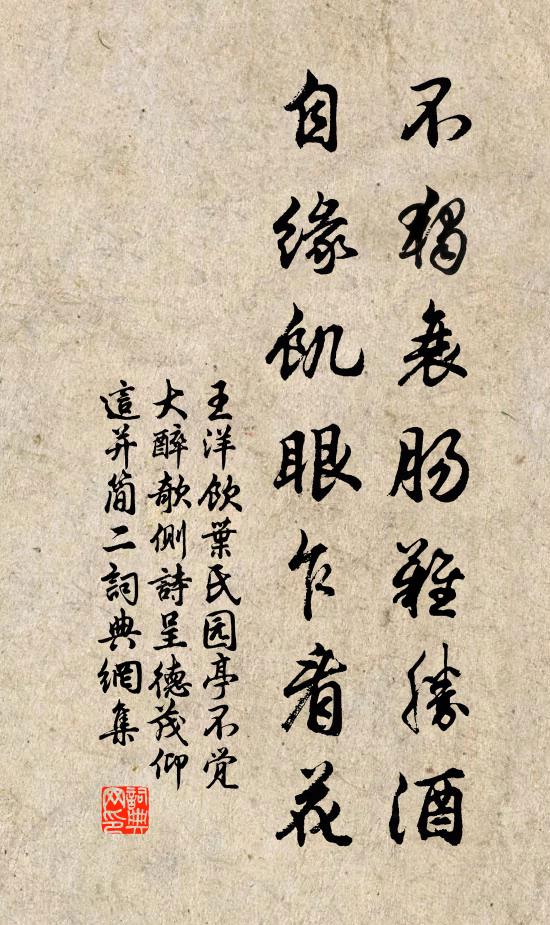 不独衰肠难胜酒
自缘饥眼乍看花
王洋饮葉氏园亭不觉
大醉欹侧詩呈德茂仰
這并简二詞典網集
詞典网印